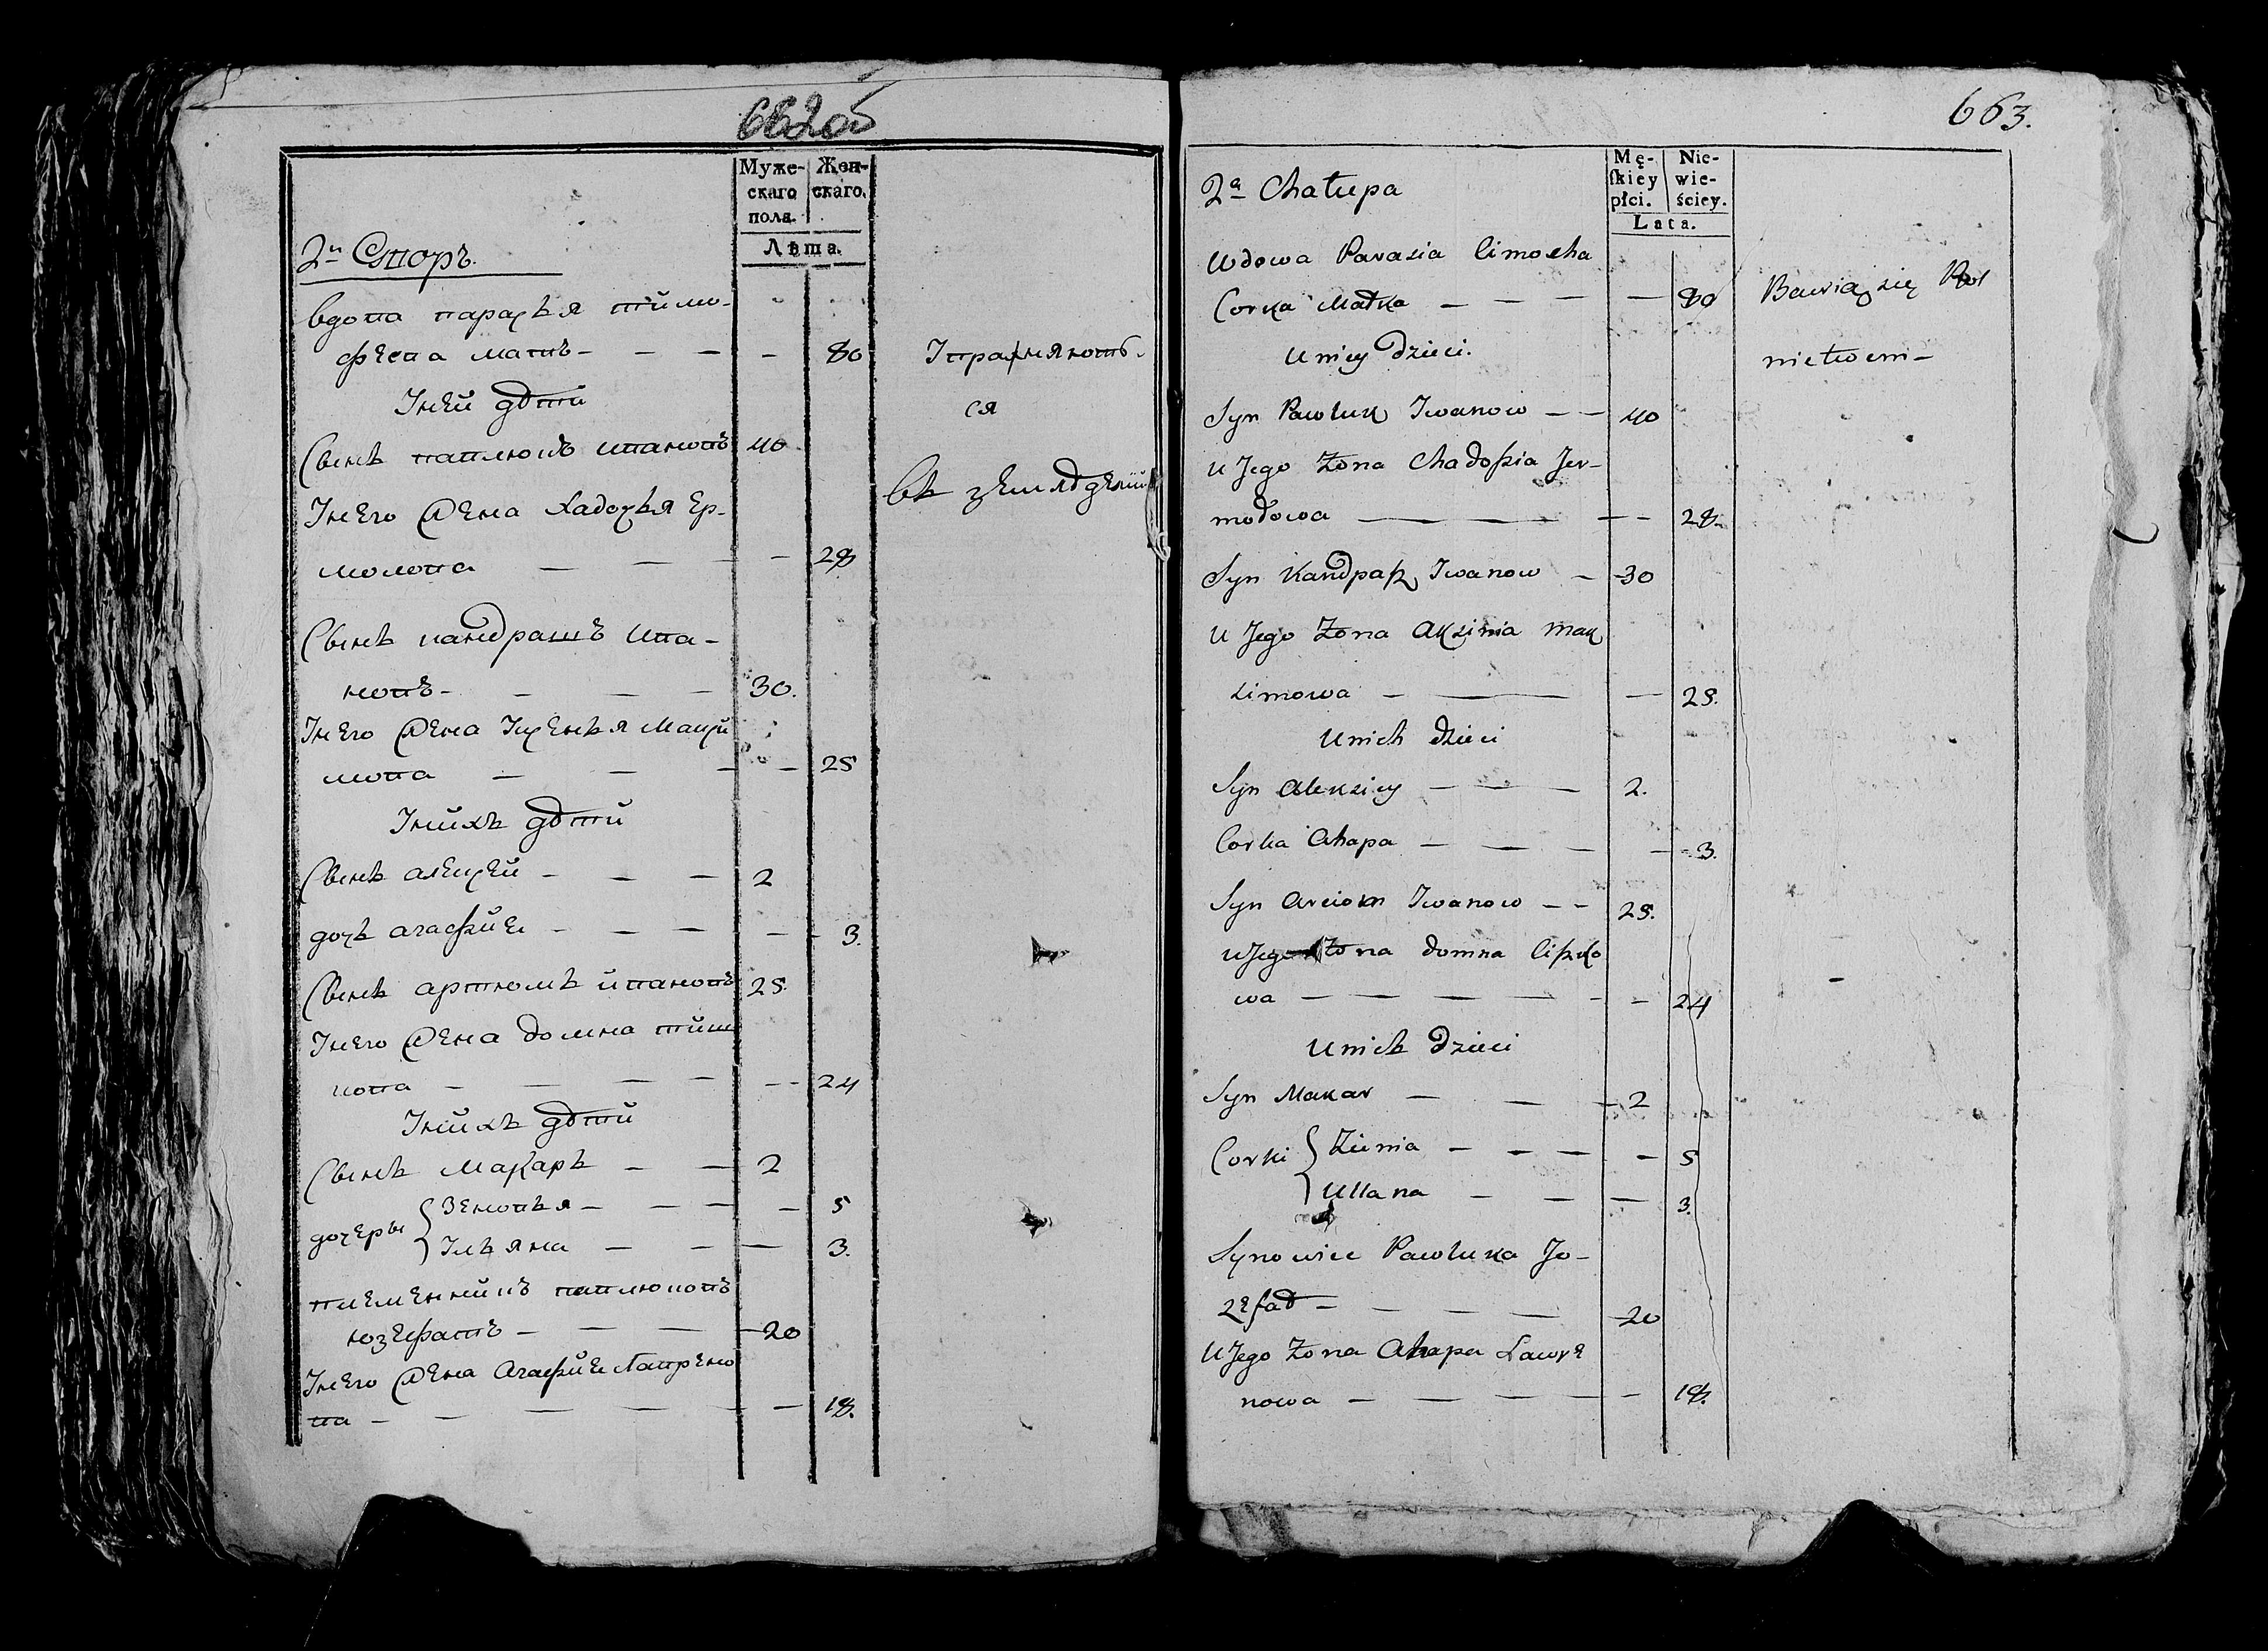 662об
Муже-
скаго
пола.
Жен-
скаго.
Лѣта.
2й Дворъ.
Вдова парасья тимо-
фѣева мать - - - - 80
Уней дѣти
Сынъ павлюкъ ивановъ 40
Унего жена хадосья Ер-
молова - - - 28
Сынъ кандрашъ ива-
новъ - - - - 30.
Унего жена Ксенья Макси
мова - - - - 25
Унихъ дѣти
Сынъ алексей - - - 2
дочь агафия - - - - 3.
Сынъ артюмъ ивановъ 25.
Унего жена домна тиш
кова - - - - - 24
Унихъ дѣти
Сынъ макаръ - - 2
дочеры Зеновья - - - - 5
Ульяна - - - 3.
племенникъ павлюковъ
юзефатъ - - - - 20
Унего жена агафия Лаврено
ва - - - - - 18.
Упражняют-
ся
въ земледелии
663.
2a Chałupa
Mę-
skiey
płci.
Nie-
wie-
ściey.
Lata.
Wdowa Parasia Cimocha
Corka Matka - - - - 80
Uniey dzieci.
Syn Pawluk Iwanow - - 40
U Jego Żona Chadoszia Jer-
mołowa - - - 28.
Syn Kandrasz Iwanow - 30
U Jego Żona Aksinia Mak
simowa - - - 25.
Unich dzieci
Syn Aleksiey - - - 2.
Corka Ahapa - - - - 3.
Syn Arciom Iwanow - - 25.
U Jego Żona Domna Ciszko
wa - - - - - - 24
Unich dzieci
Syn Makar - - - 2
Corki Zienia - - - - 5
Ullana - - - 3.
Synowiec Pawluka Jo-
zefad - - - - 20
U Jego Żona Ahapa Lawre
nowa - - - - - 18.
Bawią się Rol
nictwem -